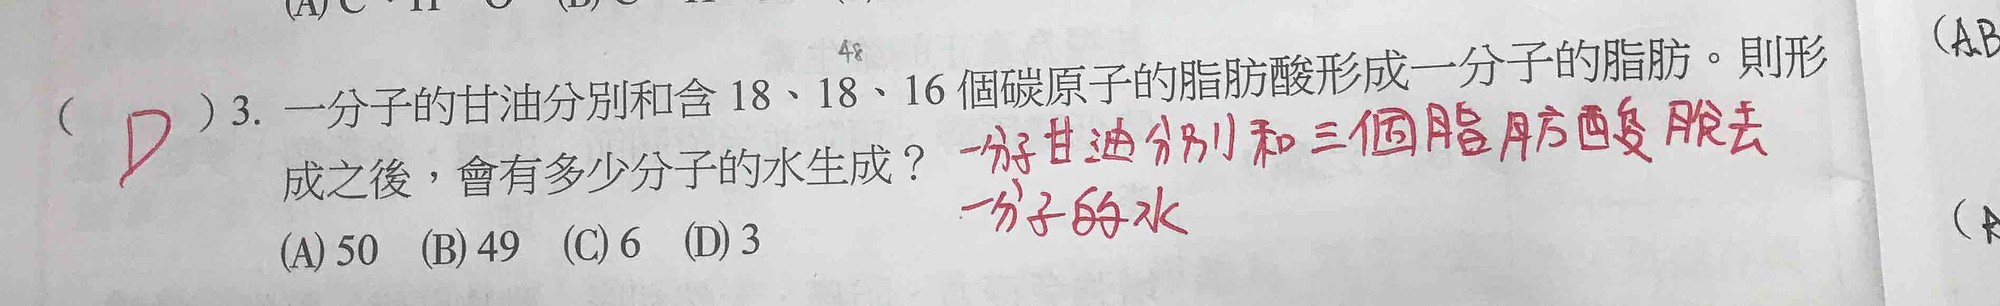 48
( D ) 3. 一分子的甘油分別和含 18、18、16 個碳原子的脂肪酸形成一分子的脂肪。則形
成之後，會有多少分子的水生成？
一分子甘油分別和三個脂肪酸脫去
一分子的水
(A) 50 (B) 49 (C) 6 (D) 3
(AB
(